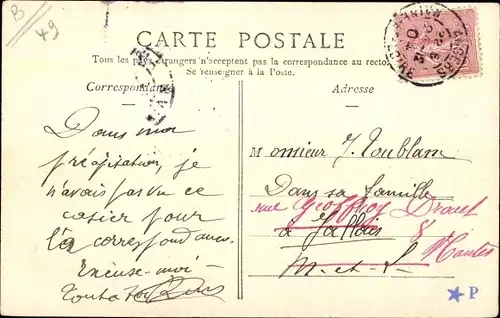 B
49
CARTE POSTALE
Tous les pays étrangers n'acceptent pas la correspondance au recto.
Se renseigner à la Poste.
Correspondance
Adresse
Dans ma
précipitation, je
n'avais pas vu ce
casier pour
la correspondance.
Excuse-moi
Tout à toi
Monsieur J. Toublanc
Dans sa famille
rue Geoffroy Drouet
à Jallais
8
Nantes
M-et-L
P